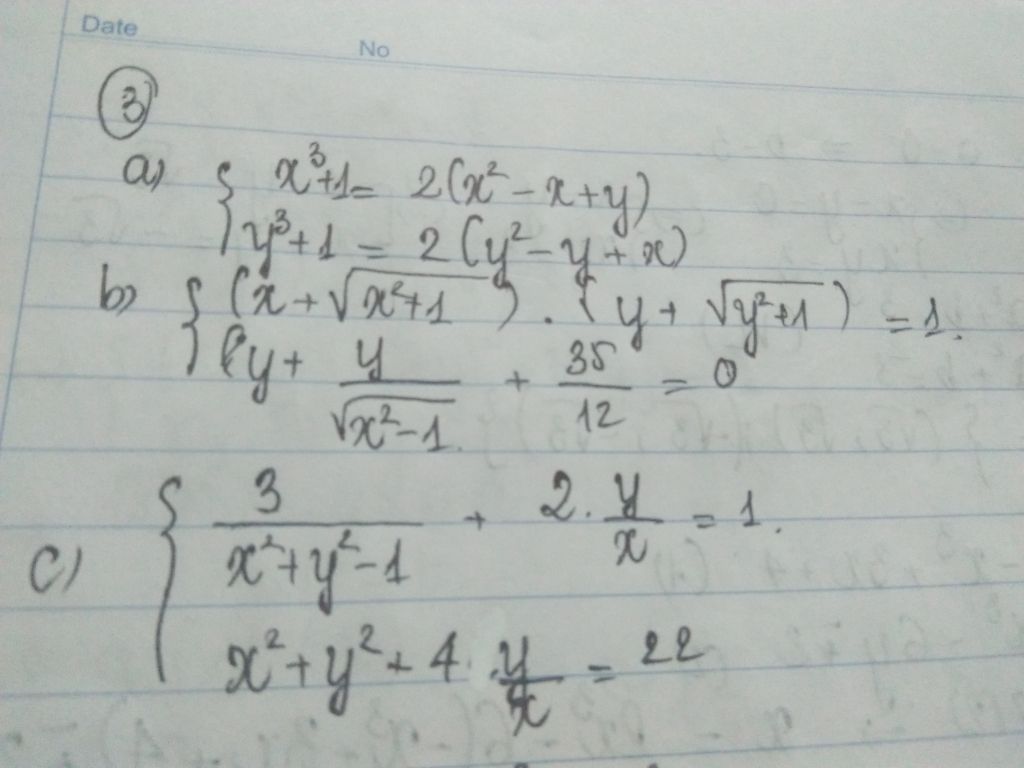 Date No
③
a) { x³+1 = 2(x² - x + y)
y³+1 = 2(y² - y + x)
b) { (x + √(x²+1)) . (y + √(y²+1)) = 1.
y + y/√(x²-1) + 35/12 = 0
c) { 3/(x²+y²-1) + 2. y/x = 1.
x² + y² + 4. y/x = 22